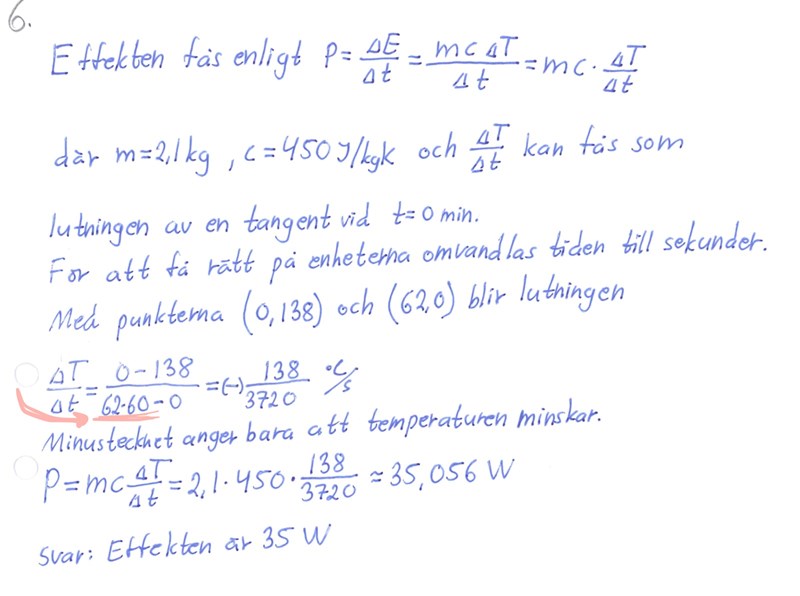 6.
Effekten fås enligt P = ΔE/Δt = mcΔT/Δt = mc · ΔT/Δt
där m=2,1kg , c=450J/kgK och ΔT/Δt kan fås som
lutningen av en tangent vid t=0 min.
For att få rätt på enheterna omvandlas tiden till sekunder.
Med punkterna (0,138) och (62,0) blir lutningen
ΔT/Δt = (0-138)/(62·60-0) = (-) 138/3720 °C/s
Minustecknet anger bara att temperaturen minskar.
P = mc ΔT/Δt = 2,1 · 450 · 138/3720 ≈ 35,056 W
Svar: Effekten är 35 W